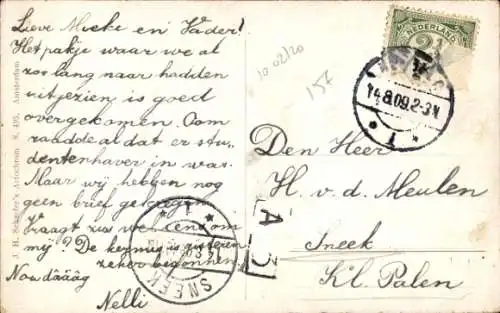 Lieve Moeke en Vader!
Het pakje waar we al
zoo lang naar hadden
uitgezien is goed
overgekomen. Oom
raadde al dat er stu-
dentenhaver in was.
Maar wij hebben nog
geen brief gekregen
Vraagt zus we om
mij? De kermis is gisteren
zeker begonnen
Nou dáág
Nelli
J. H. Schaefer's Amsterdam
10 02/20
15F
NEDERLAND
2½
14.8.09.2-3N
1
Den Heer
H. v. d. Meulen
Sneek
Kl. Palen
A
3
1
SNEEK